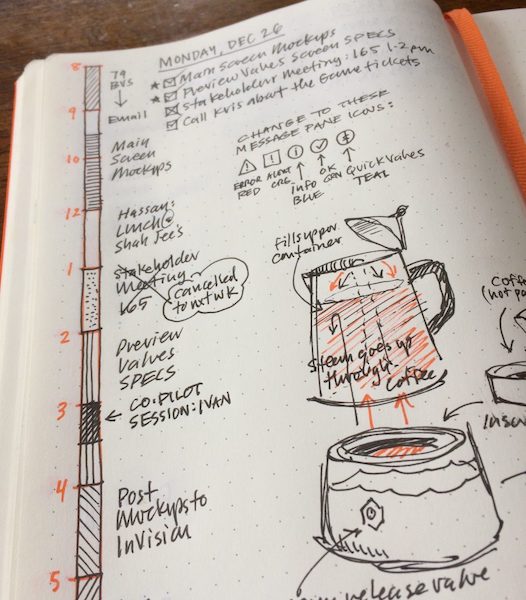 MONDAY, DEC 26
Main Screen Mockups
Preview Values Screen SPECS
Stakeholder Meeting: 165 1-2pm
Call Kris about the Game tickets
8
79
BVS
Email
9
Main
Screen
Mockups
10
12
Hassan:
Lunch @
Shah Jee's
1
Stakeholder
Meeting
165
Cancelled
to nxt wk
2
Preview
Values
SPECS
3
CO-PILOT
SESSION: IVAN
4
Post
Mockups to
InVision
5
CHANGE TO THESE
MESSAGE PANE ICONS:
ERROR
RED
ALERT
ORG
Info
BLUE
OK
GRN
Quick Values
TEAL
fills upper
container
Steam goes up
through
Coffee
Coffe
(not pa
release valve